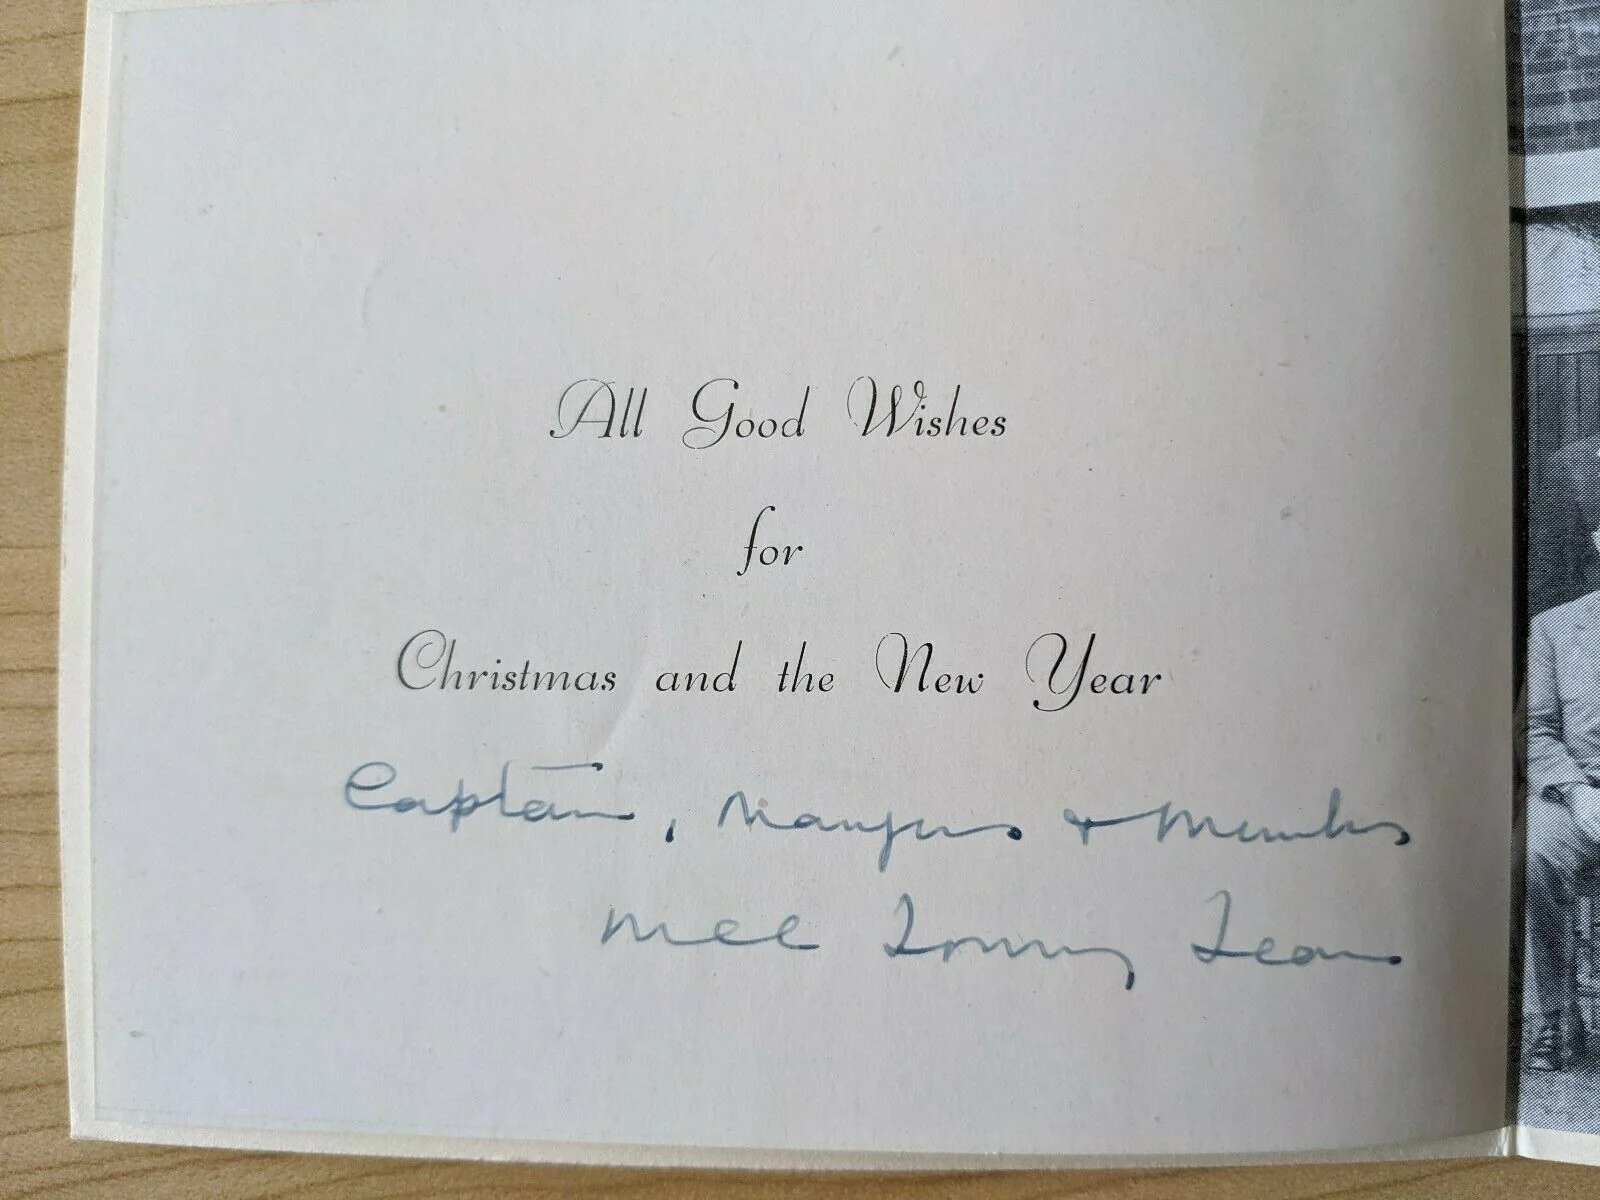 All Good Wishes
for
Christmas and the New Year
Captain, Managers & Members
MCC Touring Team